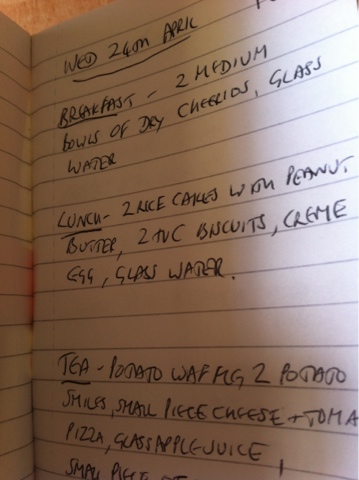 WED 24TH APRIL
BREAKFAST - 2 MEDIUM
BOWLS OF DRY CHEERIOS, GLASS
WATER
LUNCH - 2 RICE CAKES WITH PEANUT
BUTTER, 2 TUC BISCUITS, CREME
EGG, GLASS WATER.
TEA - POTATO WAFFLE, 2 POTATO
SMILES, SMALL PIECE CHEESE + TOMA
PIZZA, GLASS APPLE JUICE,
SMALL PIECE OF